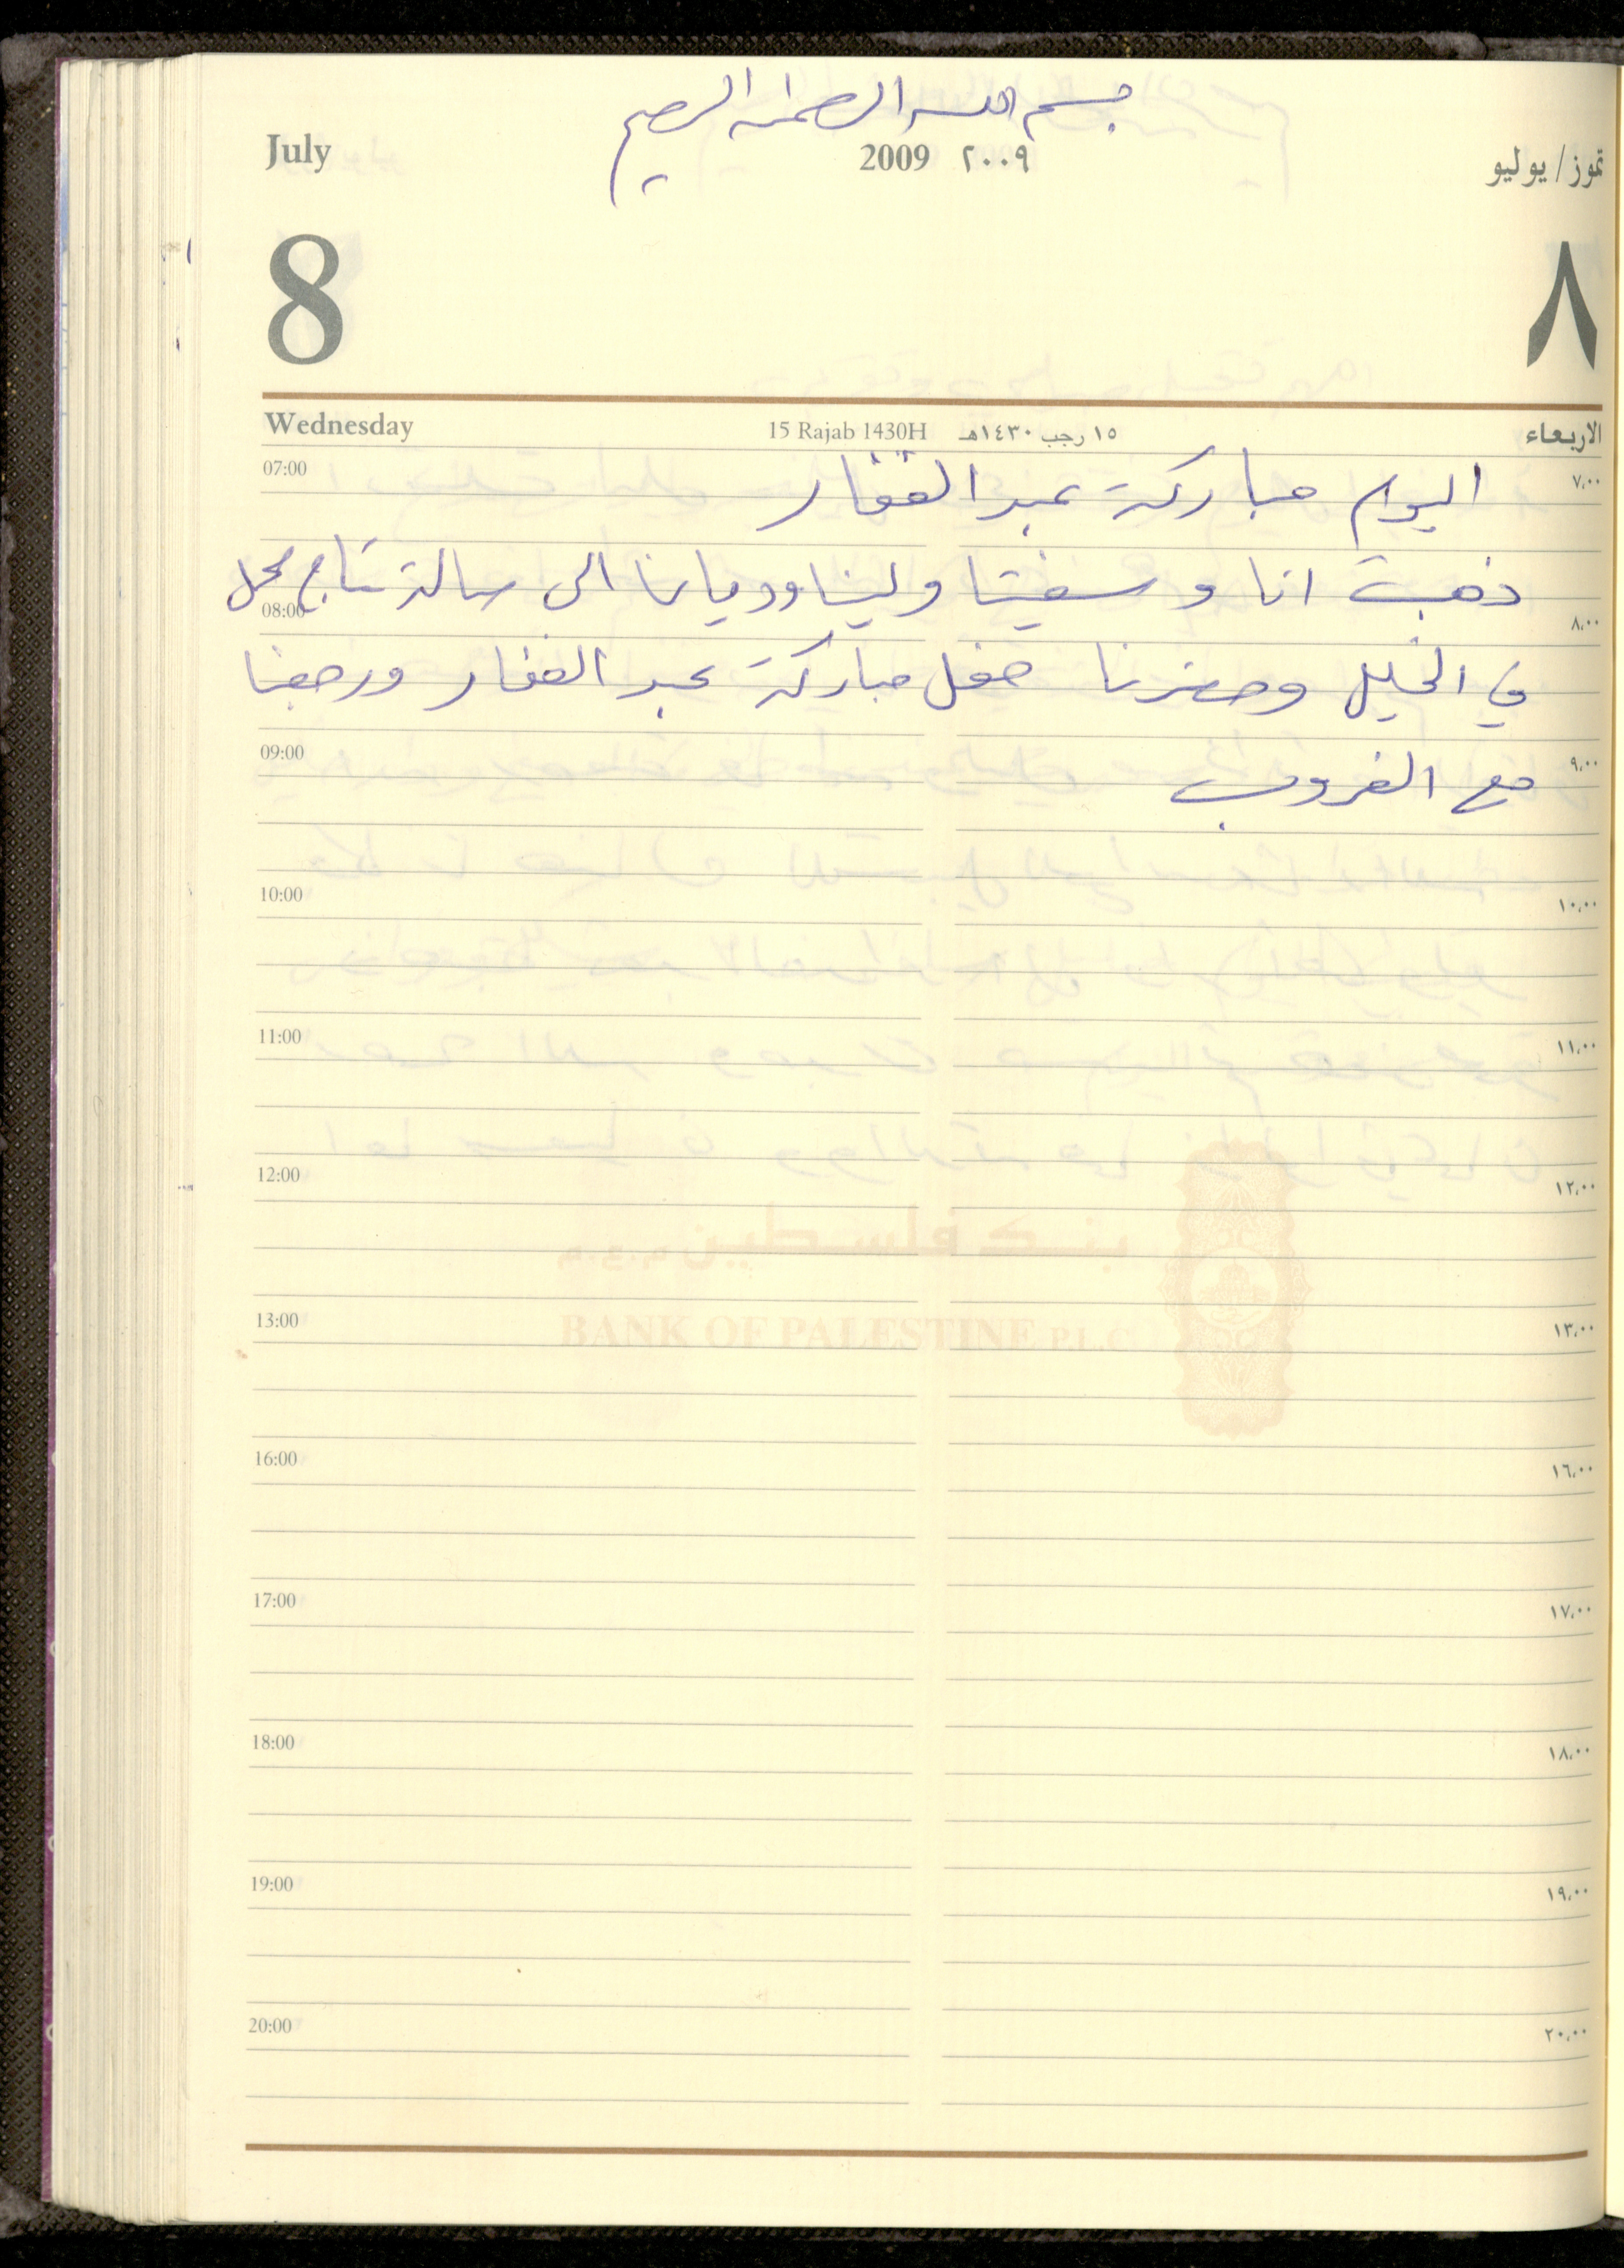 بسم الله الرحمن الرحيم
July 2009 ٢٠٠٩ تموز/يوليو
8 ٨
Wednesday 15 Rajab 1430H ١٥ رجب ١٤٣٠هـ الاربعاء
07:00 ٧،٠٠
اليوم مباركة عبد الغفار
ذهبت انا و ولينا وديانا الى صالة تاج محل
08:00 ٨،٠٠
في الخليل وحضرنا حفل مباركة عبد الغفار ورجعنا
09:00 ٩،٠٠
مع الغروب
10:00 ١٠،٠٠
11:00 ١١،٠٠
12:00 ١٢،٠٠
بنك فلسطين م.ع.م.
BANK OF PALESTINE P.L.C.
13:00 ١٣،٠٠
16:00 ١٦،٠٠
17:00 ١٧،٠٠
18:00 ١٨،٠٠
19:00 ١٩،٠٠
20:00 ٢٠،٠٠